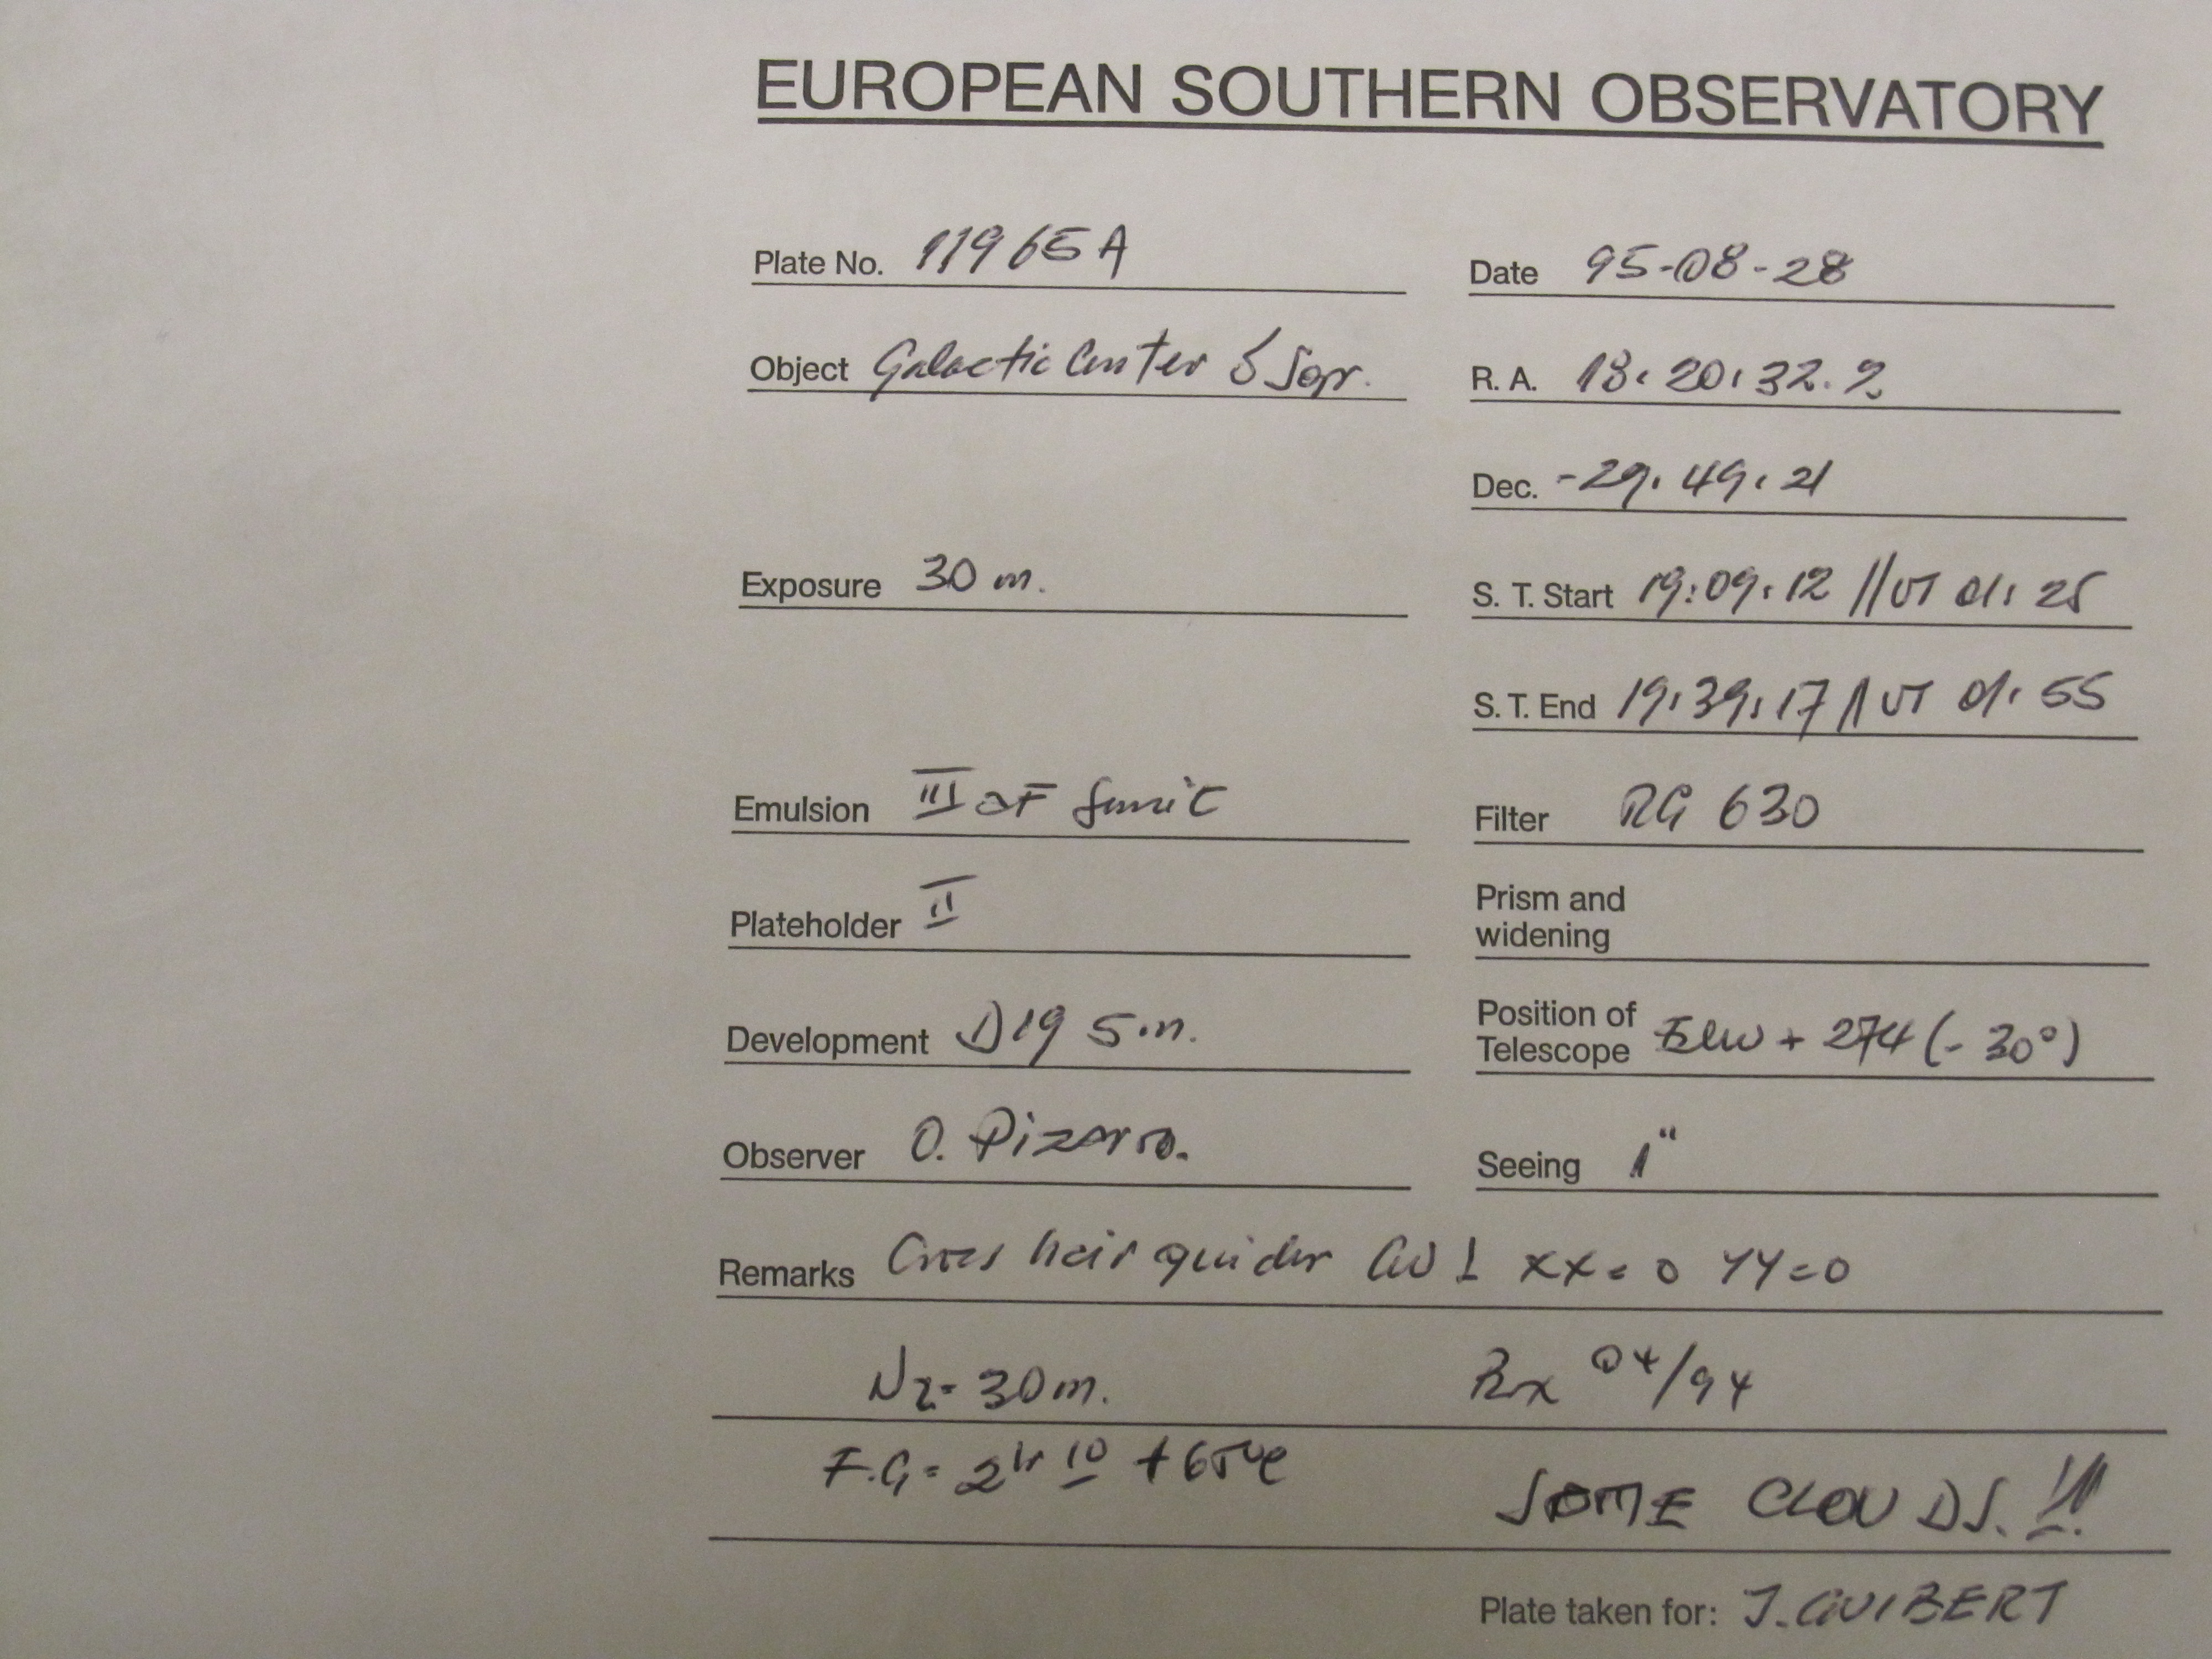 EUROPEAN SOUTHERN OBSERVATORY
Plate No. 11965A Date 95-08-28
Object Galactic Center δ Sgr. R. A. 18:20:32.2
Dec. -29:49:21
Exposure 30 m. S. T. Start 19:09:12 // UT 01:25
S. T. End 19:39:17 // UT 01:55
Emulsion III aF Filter RG 630
Plateholder II Prism and
widening
Development D19 5m. Position of
Telescope + 274 (-30°)
Observer O. Pizarro. Seeing 1"
Remarks Cross hair guider XX=0 YY=0
N2=30m. Bx 04/94
F.G= 2hr 10 + 65
SOME CLOUDS. !!!
Plate taken for: J. GUIBERT